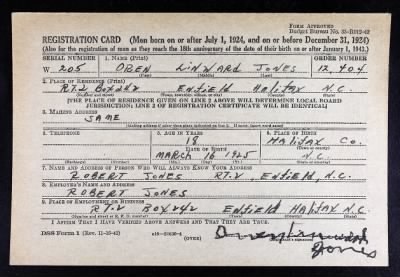 Form Approved
Budget Bureau No. 33-R012-42
REGISTRATION CARD (Men born on or after July 1, 1924, and on or before December 31, 1924)
(Also for the registration of men as they reach the 18th anniversary of the date of their birth on or after January 1, 1943.)
SERIAL NUMBER 1. Name (Print) ORDER NUMBER
W 205 OREN LINWARD JONES 12,404
(First) (Middle) (Last)
2. Place of Residence (Print)
RT.2 Box 242 Enfield Halifax N.C.
(Number and street) (Town, township, village, or city) (County) (State)
[THE PLACE OF RESIDENCE GIVEN ON LINE 2 ABOVE WILL DETERMINE LOCAL BOARD
JURISDICTION; LINE 2 OF REGISTRATION CERTIFICATE WILL BE IDENTICAL]
3. Mailing Address
SAME
[Mailing address if other than place indicated on line 2. If same, insert word same]
4. Telephone 5. Age in Years 6. Place of Birth
18 Halifax Co.
Date of Birth (Town or county)
MARCH 16 1925 N.C.
(Exchange) (Number) (Mo.) (Day) (Yr.) (State or country)
7. Name and Address of Person Who Will Always Know Your Address
ROBERT JONES RT.2, Enfield, N.C.
8. Employer's Name and Address
ROBERT JONES
9. Place of Employment or Business
RT.2 Box 242 Enfield Halifax N.C.
(Number and street or R. F. D. number) (Town) (County) (State)
I Affirm That I Have Verified Above Answers and That They Are True.
DSS Form 1 (Rev. 11-16-42) (OVER)
Jones